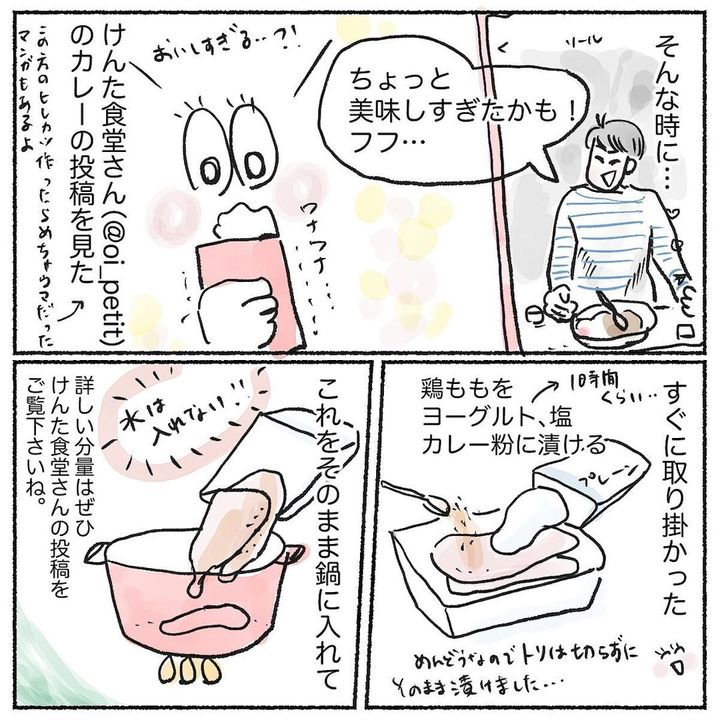 そんな時に…
リール
ちょっと
美味しすぎたかも！
フフ…
おいしすぎる…?!
ワナワナ…
けんた食堂さん(@oi_petit)
のカレーの投稿を見た
この方のヒレカツ作ったらめちゃウマだった
マンガもあるよ
すぐに取り掛かった
鶏ももを
ヨーグルト、塩
カレー粉に漬ける
1時間
くらい…
プレーン
めんどうなのでトリは切らずに
そのまま漬けました…
これをそのまま鍋に入れて
水は
入れてない!!
詳しい分量はぜひ
けんた食堂さんの投稿を
ご覧下さいね。